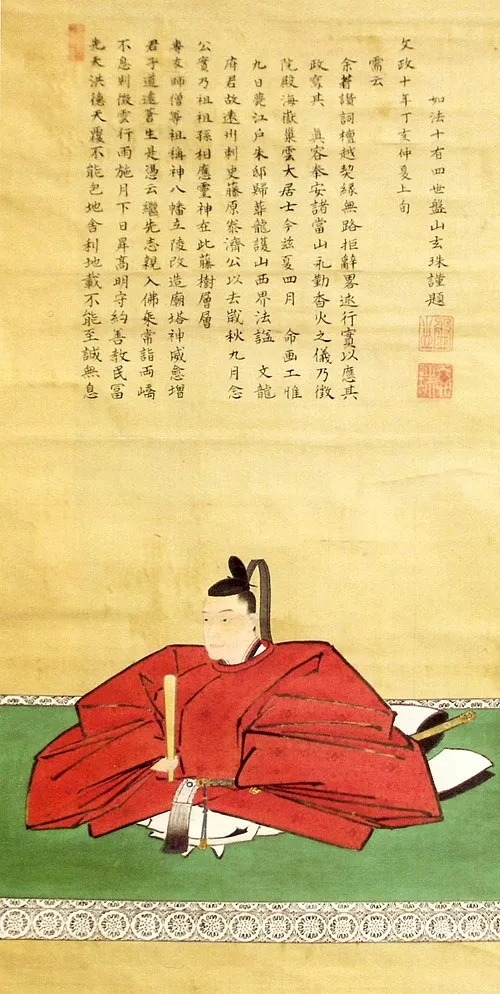 先天洪徳天覆不能包地舎利地載不能至誠無息
不息則徴雲行雨施月下日昇高明守約善教民冨
君子道遠蒼生是憑云繼先志親入佛乗常詣両嶠
專安師僧等祖稱神八幡立陵改造廟塔神威愈増
公實乃祖祖孫相應靈神在此藤樹層層
府君故遠州刺史藤原泰濟公以去歳秋九月念
九日薨江戸朱邸歸葬龍護山西界法謚 文龍
院殿海嶽巣雲大居士今茲夏四月 命画工惟
政寫其 眞容奉安諸當山永勤香火之儀乃徴
余著讃詞檀越契縁無路拒辭畧述行實以應其
需云
文政十年丁亥仲夏上旬
如法十有四世盤山玄珠謹題